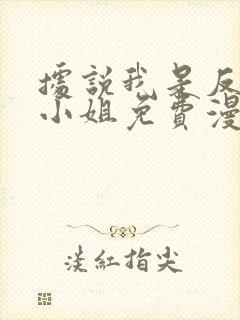 據說我是反
小姐免費漫
淡紅指尖